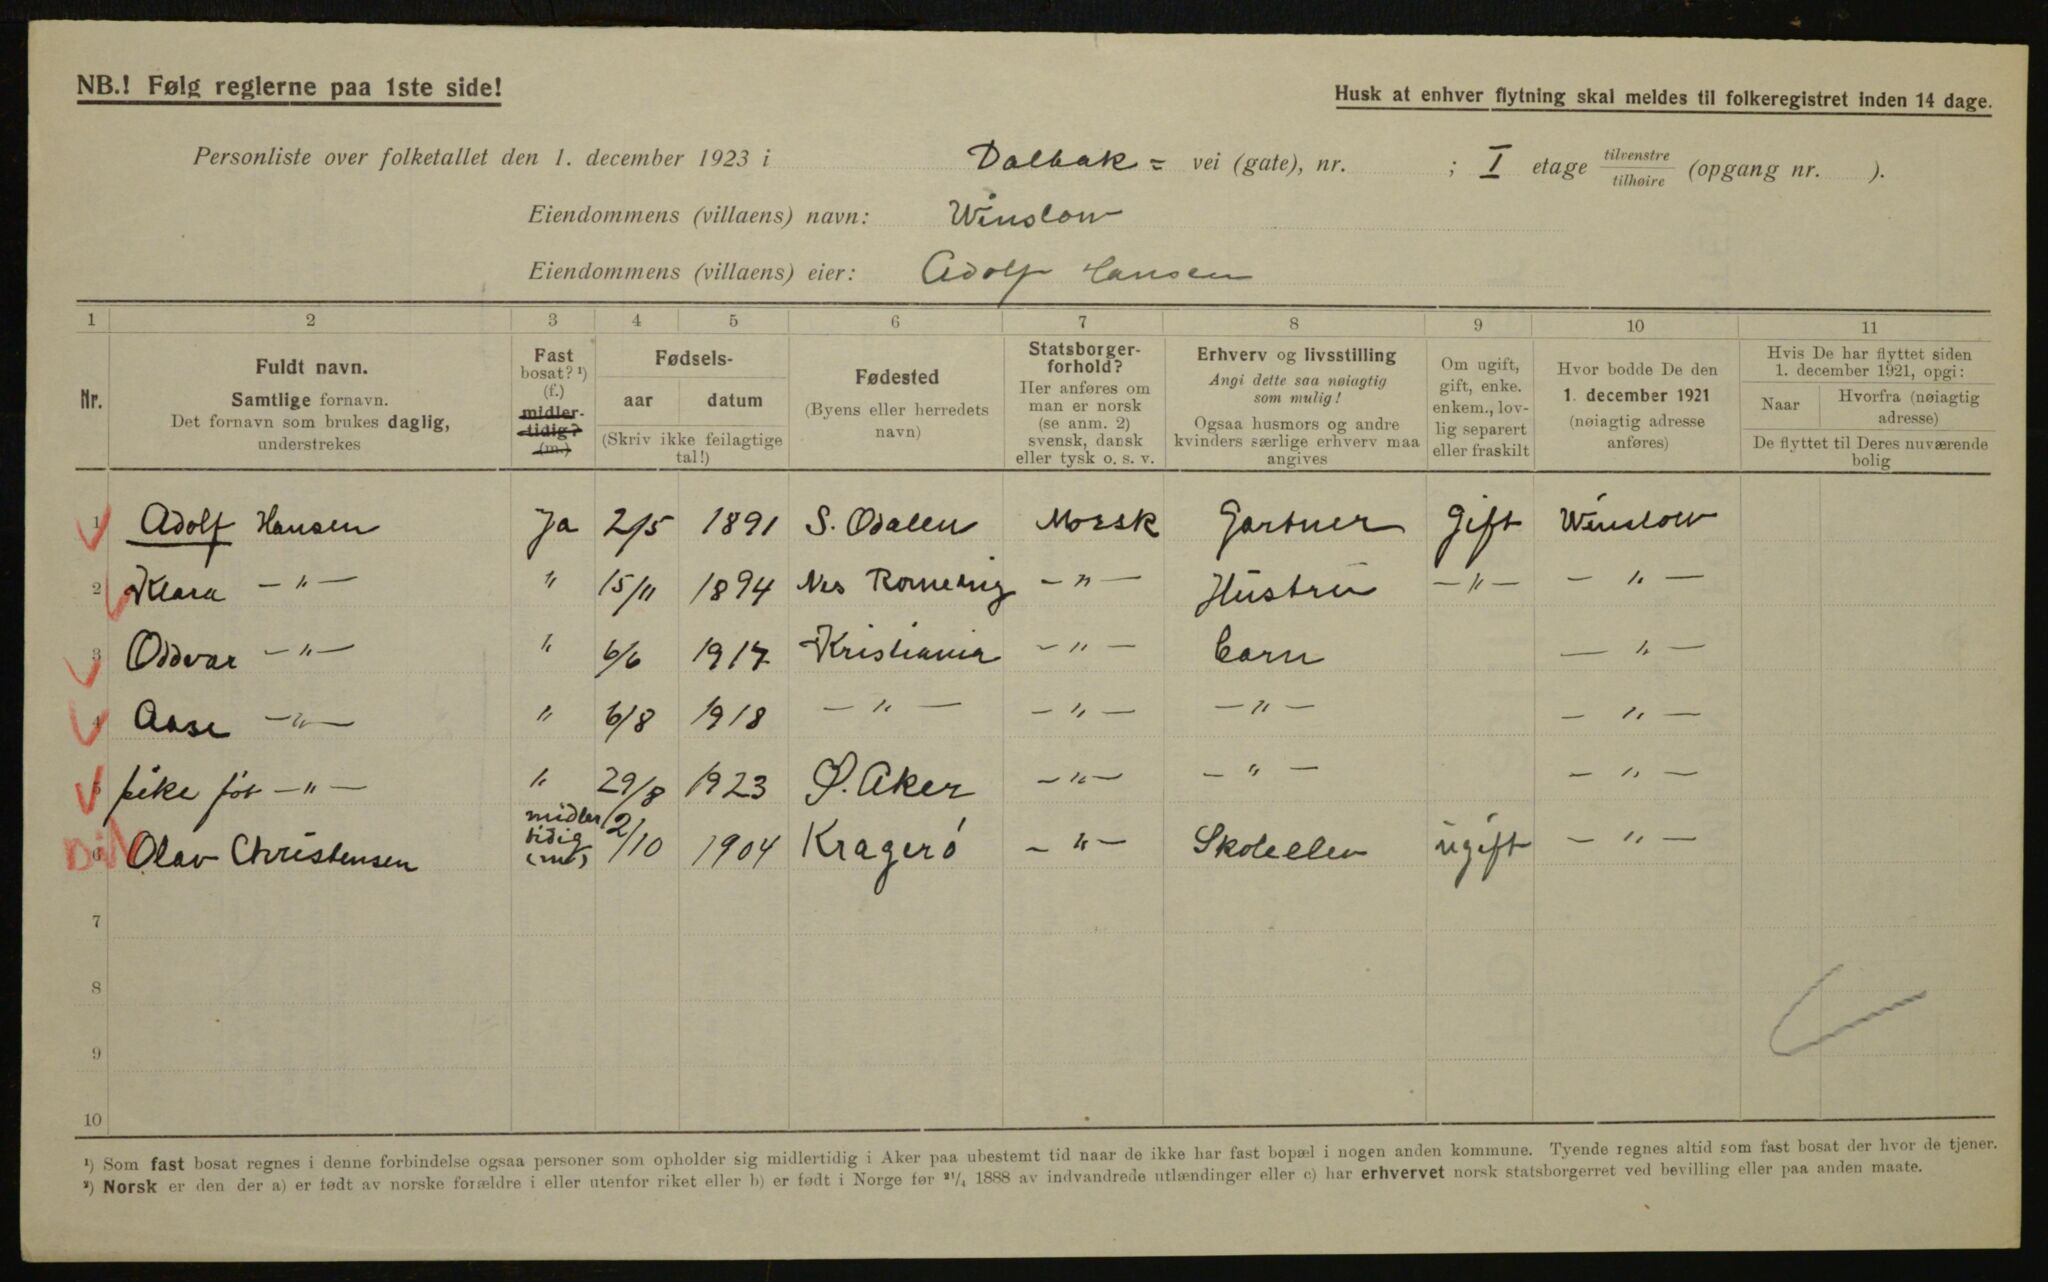 NB.! Følg reglerne paa 1ste side!
Husk at enhver flytning skal meldes til folkeregistret inden 14 dage.
Personliste over folketallet den 1. december 1923 i Dalbak= vei (gate), nr. ; I etage tilvenstre tilhøire (opgang nr. ).
Eiendommens (villaens) navn: Winslow
Eiendommens (villaens) eier: Adolf Hansen
1 2 3 4 5 6 7 8 9 10 11
Nr.
Fuldt navn.
Samtlige fornavn.
Det fornavn som brukes daglig,
understrekes
Fast
bosat? ¹)
(f.)
midler-
tidig?
(m.)
Fødsels-
aar datum
(Skriv ikke feilagtige
tal!)
Fødested
(Byens eller herredets
navn)
Statsborger-
forhold?
Her anføres om
man er norsk
(se anm. 2)
svensk, dansk
eller tysk o. s. v.
Erhverv og livsstilling
Angi dette saa nøiagtig
som mulig!
Ogsaa husmors og andre
kvinders særlige erhverv maa
angives
Om ugift,
gift, enke.
enkem., lov-
lig separert
eller fraskilt
Hvor bodde De den
1. december 1921
(nøiagtig adresse
anføres)
Hvis De har flyttet siden
1. december 1921, opgi:
Naar
Hvorfra (nøiagtig
adresse)
De flyttet til Deres nuværende
bolig
1 Adolf Hansen Ja 2/5 1891 S. Odalen Norsk Gartner Gift Winslow
2 Klara —"— " 15/11 1894 Nes Romerig —"— Hustru —"— —"—
3 Oddvar —"— " 6/6 1917 Kristiania —"— barn —"—
4 Aase —"— " 6/8 1918 —"— —"— —"— —"—
5 pike föt —"— " 29/8 1923 Ø. Aker —"— —"— —"—
6 Olav Christensen midler tidig (m) 2/10 1904 Kragerö —"— Skoleelev ugift —"—
7
8
9
10
¹) Som fast bosat regnes i denne forbindelse ogsaa personer som opholder sig midlertidig i Aker paa ubestemt tid naar de ikke har fast bopæl i nogen anden kommune. Tyende regnes altid som fast bosat der hvor de tjener.
²) Norsk er den der a) er født av norske forældre i eller utenfor riket eller b) er født i Norge før ²¹/₄ 1888 av indvandrede utlændinger eller c) har erhvervet norsk statsborgerret ved bevilling eller paa anden maate.